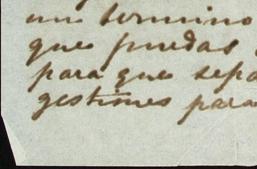 un termino
que puedas
para que sepa
gestiones para